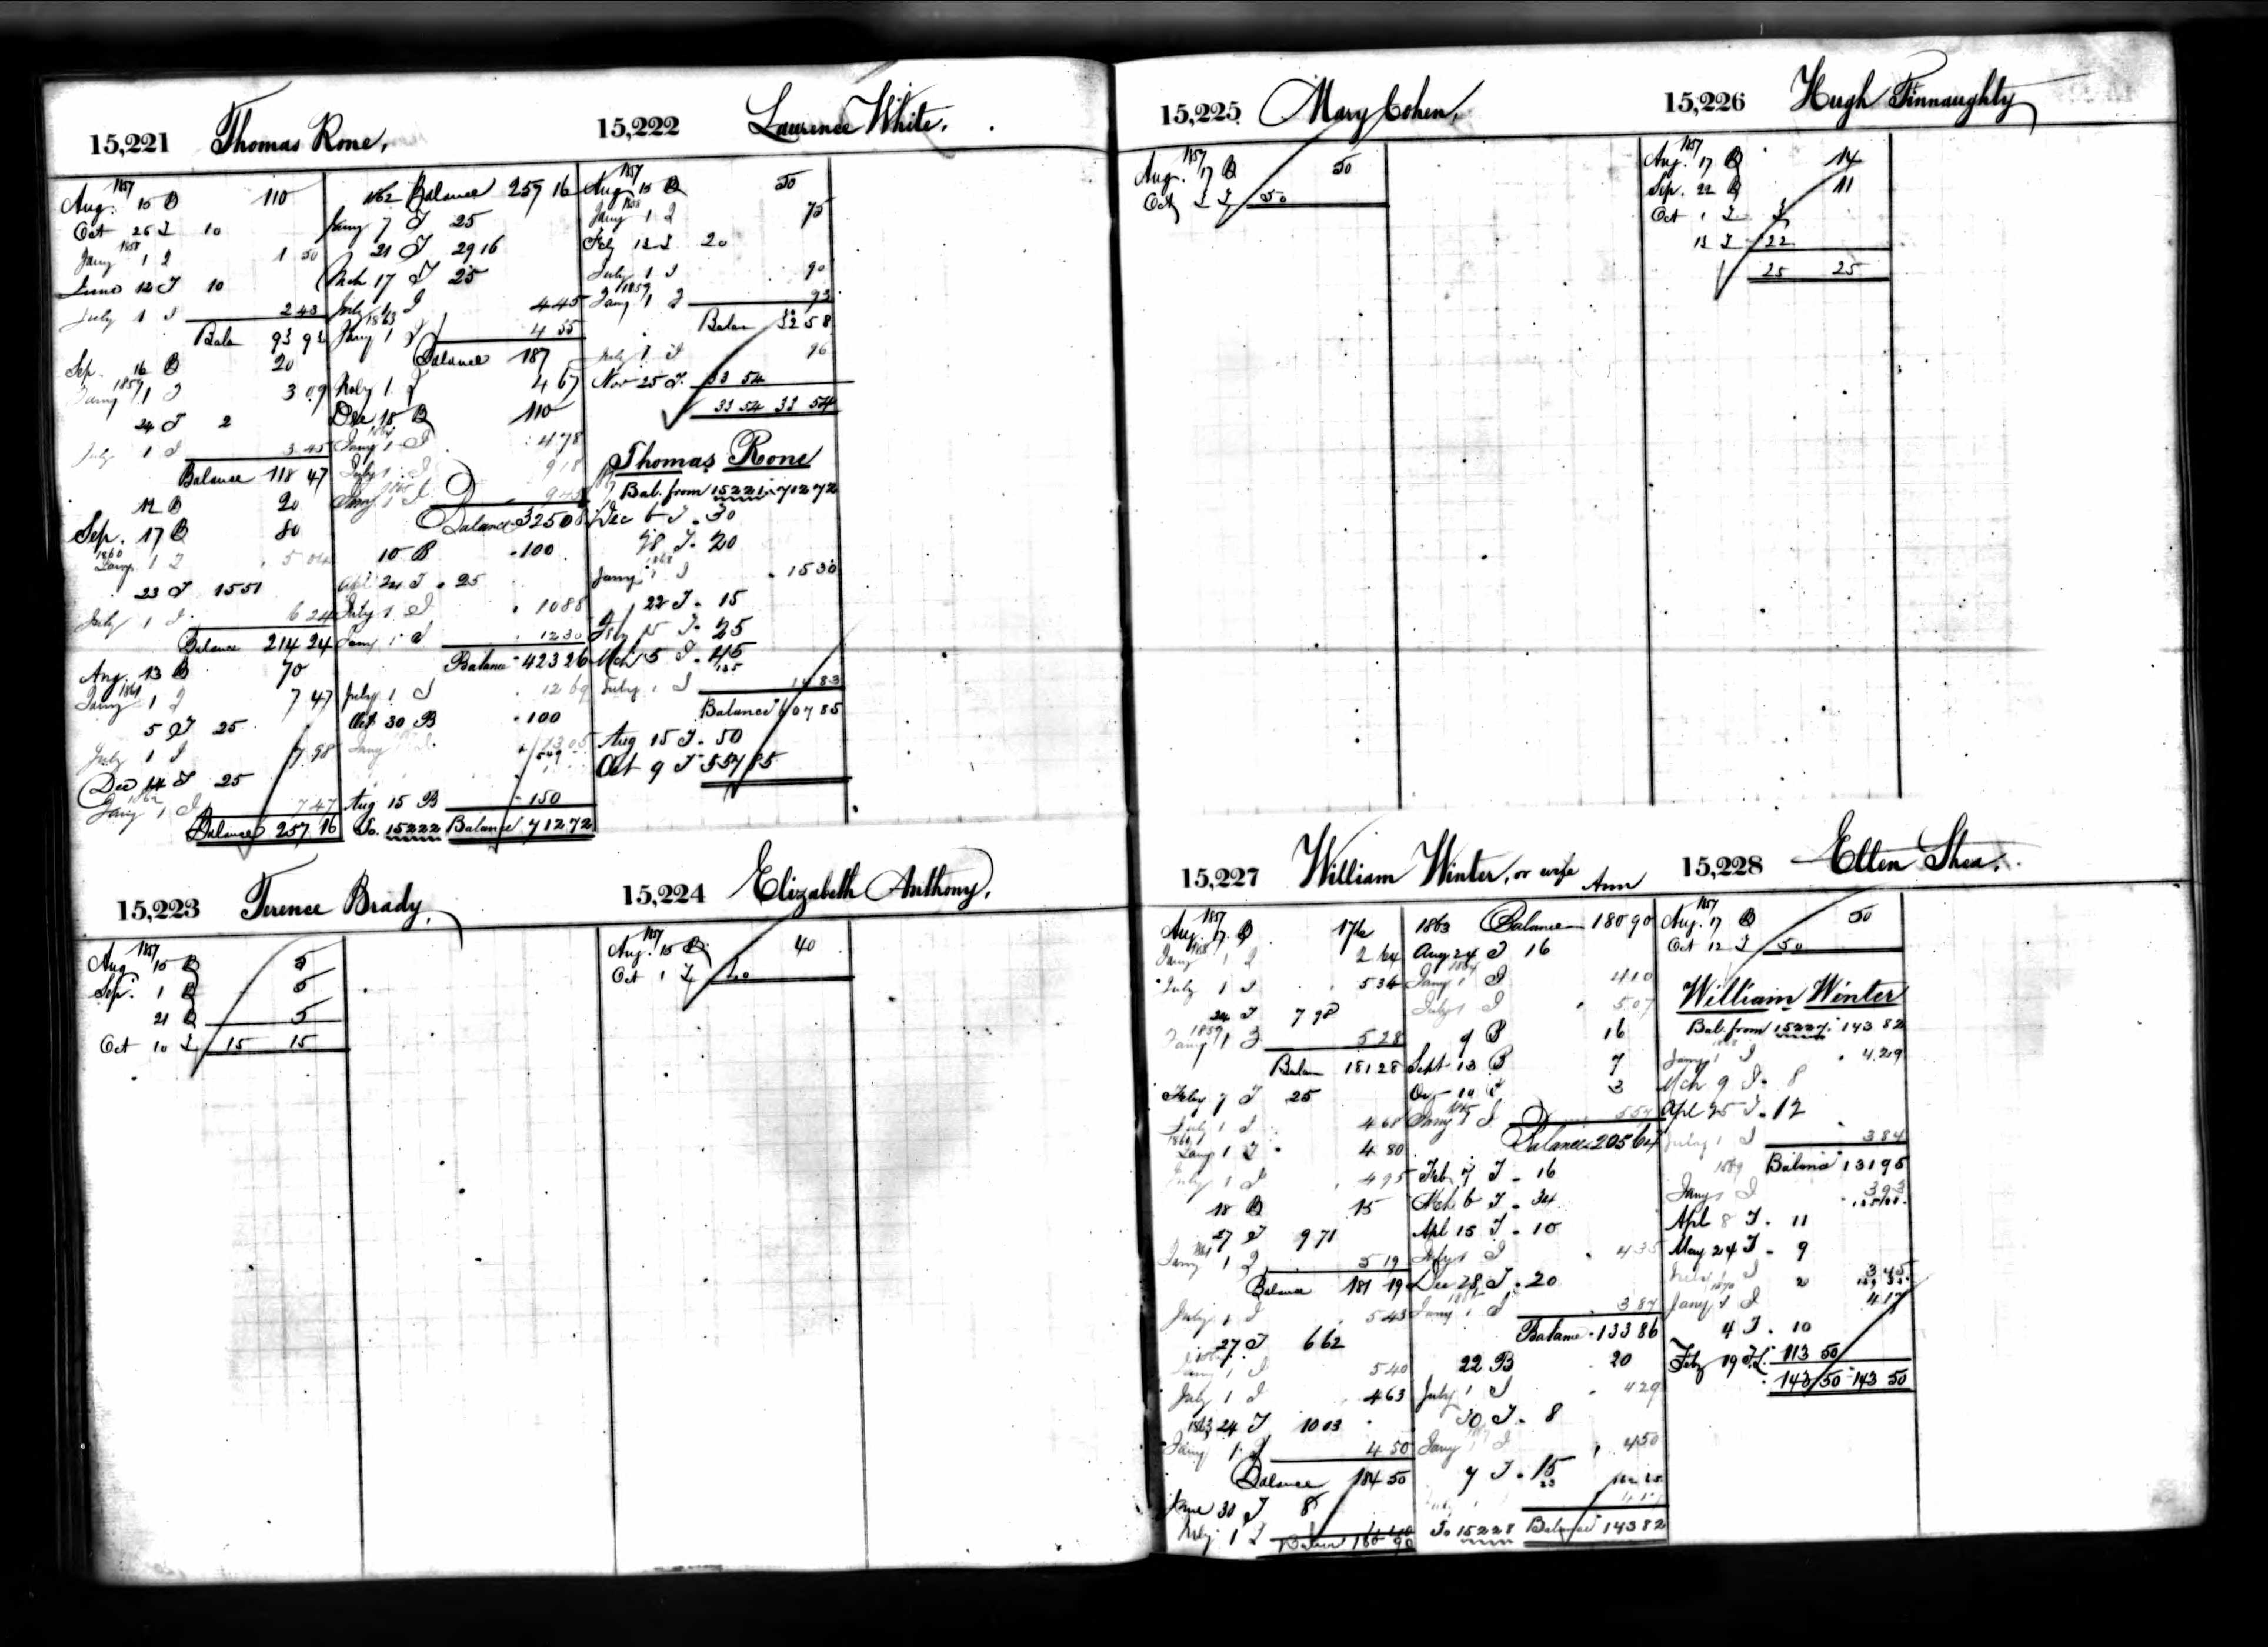 15,221 Thomas Rone,
1857
Aug. 15 B 110
Oct 26 T 10
1858
Jany 1 I 1 50
June 12 T 10
July 1 I 2 43
Balan 93 93
Sep. 16 B 20
1859
Jany 1 I 3 09
24 T 2
July 1 I 3 45
Balance 118 47
12 B 20
Sep. 17 B 80
1860
Jany 1 I
23 T 15 51
July 1 I 6 24
Balance 214 24
Aug. 13 B 70
1861
Jany 1 I 7 47
5 T 25
July 1 I 7 98
Dec 14 T 25
1862
Jany 1 I 7 47
Balance 257 16
1862 Balance 257 16
Jany 7 T 25
21 T 29 16
Mch 17 T 25
July 1 I 4 45
1863
Jany 1 I 4 55
Balance 187
July 1 I 4 67
Dec 18 B 110
1864
Jany 1 I 4 78
July 1 I 9 18
1865
Jany 1 I
Balance 325 08
10 B 100
Apl 24 T 25
July 1 I 10 88
Jany 1 I 12 30
Balance 423 26
July 1 I 12 69
Oct 30 B 100
Jany
Aug 15 B 150
To. 15222 Balance 712 72
15,222 Laurence White.
1857
Aug 15 B 50
1858
Jany 1 I 75
Feby 13 T 20
July 1 I 90
1859
Jany 1 I 93
Balan 32 58
July 1 I 96
Nov 25 T. 33 54
33 54 33 54
Thomas Rone
Bal. from 15221 712 72
Dec 6 T. 30
28 T. 20
1868
Jany 1 I 15 30
22 T. 15
Feby 15 T. 25
Mch 5 T. 45
July 1 I 14 83
Balance 607 85
Aug 15 T. 50
Oct 9 T 557 85
15,223 Terence Brady,
1857
Aug 15 B 5
Sep. 1 B 5
21 B 5
Oct 10 T 15 15
15,224 Elizabeth Anthony,
1857
Aug. 15 B 40
Oct 1 T 40
15,225 Mary Cohen,
1857
Aug. 17 B 50
Oct 3 T 50
15,226 Hugh Finnaughty
1857
Aug. 17 B 14
Sep. 22 B 11
Oct 1 T 3
13 T 22
25 25
15,227 William Winter, or wife Ann
1857
Aug. 17 B 176
1858
Jany 1 I 2 64
July 1 I 5 34
24 T 7 98
1859
Jany 1 I 5 28
Balan 181 28
Feby 7 T 25
July 1 I 4 68
1860
Jany 1 I 4 80
July 1 I 4 95
18 B 15
27 T 9 71
1861
Jany 1 I 5 19
Balance 181 19
July 1 I 5 43
27 T 6 62
Jany 1 I 5 40
July 1 I 4 63
24 T 10 03
1863
Jany 1 I 4 50
Balance 184 50
June 30 T 8
July 1 I 4 40
Balance 180 90
1863 Balance 180 90
Aug 24 T 16
1864
Jany 1 I 4 10
July 1 I 5 07
9 B 16
Sept 13 B 7
10 B 3
1865
Jany 1 I 5 57
Balance 205 64
Feb 7 T 16
Mch 6 T 34
Apl 15 T 10
July 1 I 4 35
Dec 28 T 20
Jany 1 I 3 87
Balance 133 86
22 B 20
July 1 I 4 29
30 T. 8
Jany 1 I 4 50
7 T. 15
To 15228 Balance 143 82
15,228 Ellen Shea.
1857
Aug. 17 B 50
Oct 12 T 50
William Winter
Bal. from 15227. 143 82
1868
Jany 1 I 4 29
Mch 9 T. 8
Apl 25 T. 12
July 1 I 3 84
Balance 131 95
1869
Jany 1 I 3 93
Apl 8 T. 11
May 24 T. 9
July 1 I 3 45
1870
Jany 1 I 4 17
4 T. 10
Feby 19 T. 113 50
143 50 143 50